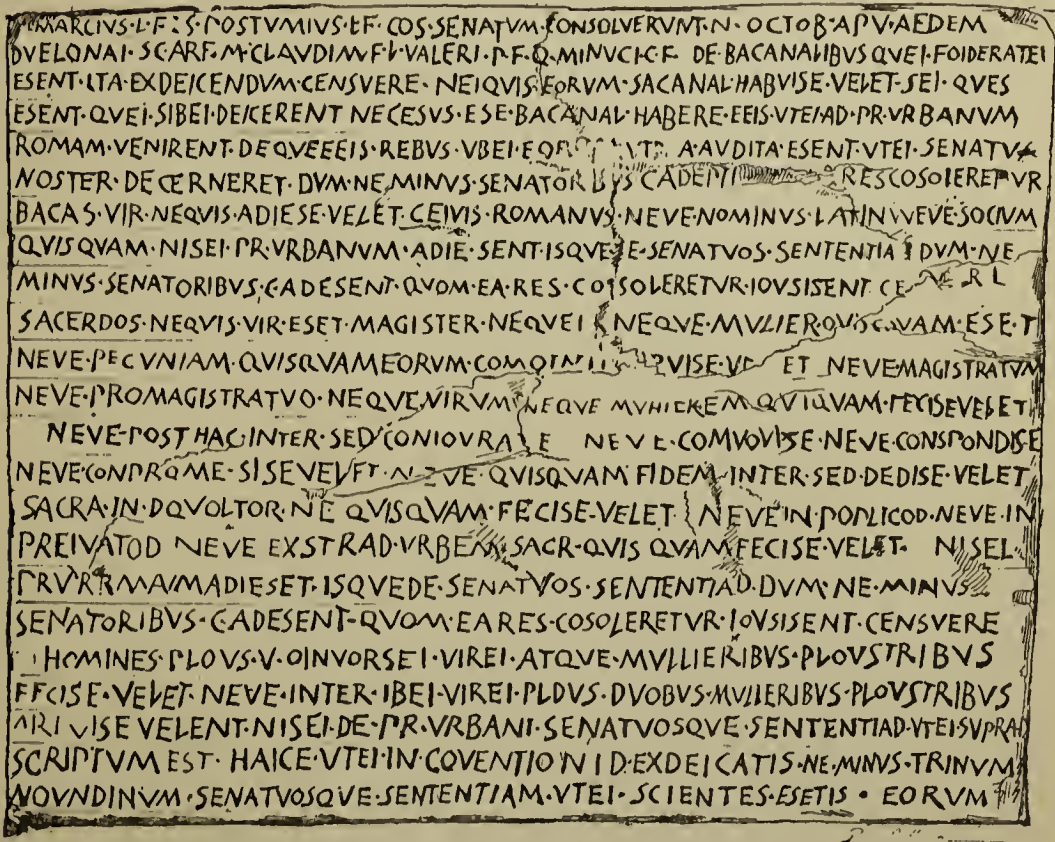 MARCIVS·L·F·S·POSTVMIVS·LF· COS·SENATVM·CONSOLVERVNT·N·OCTOB·APV·AEDEM
DVELONAI·SC·ARF·M·CLAVDIM·F·L·VALERI·P·F·Q·MINVCI·C·F· DE·BACANALIBVS QVEI·FOIDERATEI
ESENT·ITA·EXDEICENDVM·CENSVERE·NEIQVIS·EORVM·SACANAL·HABVISE·VELET·SEI·QVES
ESENT·QVEI·SIBEI·DEICERENT NECESVS·ESE·BACANAL·HABERE·EEIS·VTEI·AD·PR·VRBANVM
ROMAM·VENIRENT·DEQVEEEIS·REBVS·VBEI· A·AVDITA·ESENT·VTEI·SENATV
NOSTER·DECERNERET·DVM·NE·MINVS·SENATORIBVS CADEM RESCOSOLERETVR
BACAS·VIR·NEQVIS·ADIESE·VELET·CEIVIS·ROMANVS·NEVE·NOMINVS·LATIN NEVE·SOCIVM
QVISQVAM·NISEI·PR·VRBANVM·ADIE·SENT·ISQVE E·SENATVOS·SENTENTIA DVM·NE
MINVS·SENATORIBVS·C·ADESENT·QVOM·EA·RES·COSOLERETVR·IOVSISENT·CE
SACERDOS·NEQVIS·VIR·ESET·MAGISTER·NEQVEI NEQVE·MVLIER·QVISQVAM·ESE·T
NEVE·PECVNIAM·QVISQVAMEORVM·COMOIN ET NEVE·MAGISTRATVM
NEVE·PROMAGISTRATVO·NEQVE·VIRVM NEQVE MVHIEREM·QVIQVAM·FECISEVELET
NEVE·POST HAC·INTER·SED·CONIOVRA E NEVE·COMVOVISE·NEVE·CONSPONDISE
NEVE·CONPROME·SISEVELET·NEVE·QVISQVAM FIDEM·INTER·SED·DEDISE·VELET
SACRA·IN·DQVOLTOR·NE QVISQVAM·FECISE·VELET· NEVE·IN·POPLICOD·NEVE·IN
PREIVATOD NEVE EXSTRAD·VRBEM·SACR·QVIS QVAM FECISE·VELET· NISEI
PRVRRMAIMADIESET·ISQVEDE·SENATVOS·SENTENTIAD·DVM·NE·MINVS
SENATORIBVS·C·ADESENT·QVOM·EARES·COSOLERETVR·IOVSISENT·CENSVERE
HOMINES·PLOVS·V·OINVORSEI·VIREI·ATQVE·MVLLIERIBVS·PLOVSTRIBVS
FECISE·VELET·NEVE·INTER·IBEI·VIREI·PLDVS·DVOBVS·MVLIERIBVS·PLOVSTRIBVS
ARI VISE VELENT·NISEI·DE·PR·VRBANI·SENATVOSQVE·SENTENTIAD·VTEI·SVPRAD
SCRIPTVM EST· HAICE·VTEI·IN·COVENTIONID·EXDEICATIS·NE·MINVS·TRINVM
NOVNDINVM·SENATVOSQVE·SENTENTIAM·VTEI·SCIENTES·ESETIS·EORVM